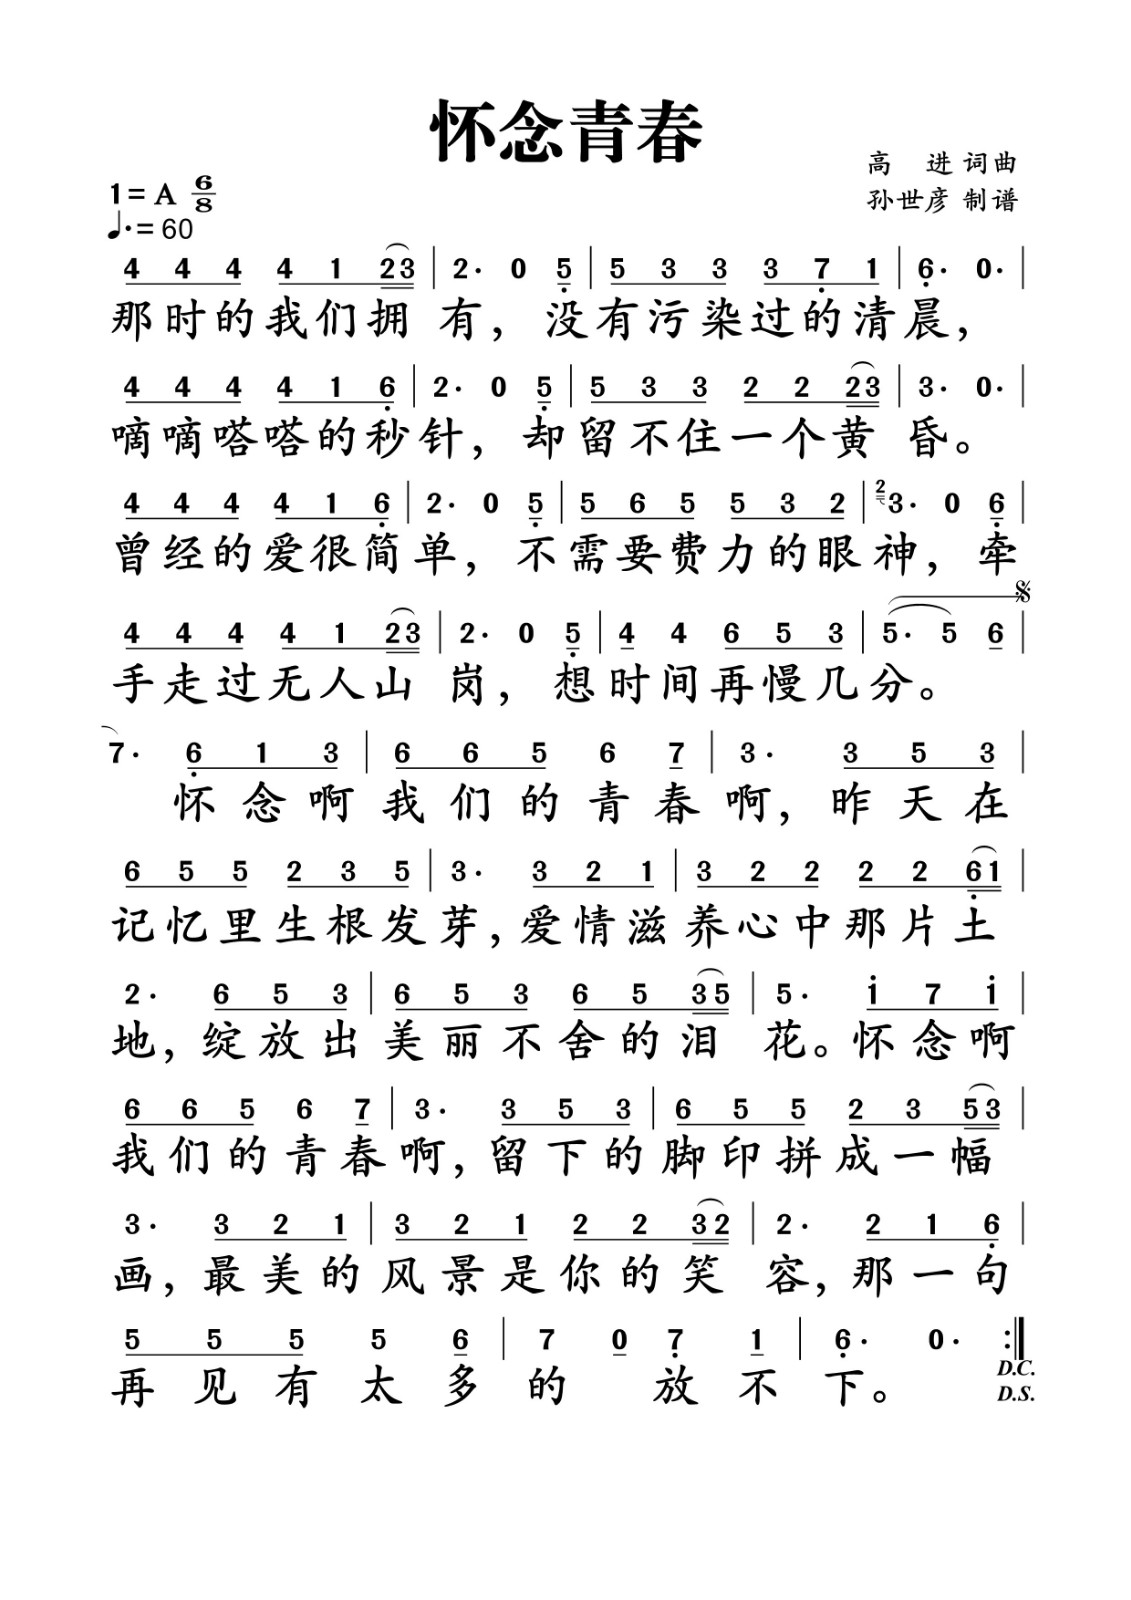 怀念青春
高 进 词曲
1= A 6/8
孙世彦 制谱
♩.= 60
4 4 4 4 1 2 3 | 2· 0 5̣ | 5 3 3 3 7̣ 1 | 6̣· 0· |
那时的我们拥 有，没有污染过的清晨，
4 4 4 4 1 6̣ | 2· 0 5̣ | 5 3 3 2 2 2 3 | 3· 0· |
嘀嘀嗒嗒的秒针，却留不住一个黄 昏。
4 4 4 4 1 6̣ | 2· 0 5̣ | 5 6 5 5 3 2 | 2 3· 0 6̣ |
曾经的爱很简单，不需要费力的眼神，牵
4 4 4 4 1 2 3 | 2· 0 5̣ | 4 4 6 5 3 | 5· 5 6 |
手走过无人山 岗，想时间再慢几分。
7· 6̣ 1 3 | 6 6 5 6 7 | 3· 3 5 3 |
怀念啊我们的青春啊，昨天在
6 5 5 2 3 5 | 3· 3 2 1 | 3 2 2 2 2 6̣ 1 |
记忆里生根发芽，爱情滋养心中那片土
2· 6 5 3 | 6 5 3 6 5 3 5 | 5· 1̇ 7 1̇ |
地，绽放出美丽不舍的泪 花。怀念啊
6 6 5 6 7 | 3· 3 5 3 | 6 5 5 2 3 5 3 |
我们的青春啊，留下的脚印拼成一幅
3· 3 2 1 | 3 2 1 2 2 3 2 | 2· 2 1 6̣ |
画，最美的风景是你的笑 容，那一句
5 5 5 5 6 | 7 0 7̣ 1 | 6̣· 0· :‖
再见有太多的 放不下。
D.C.
D.S.